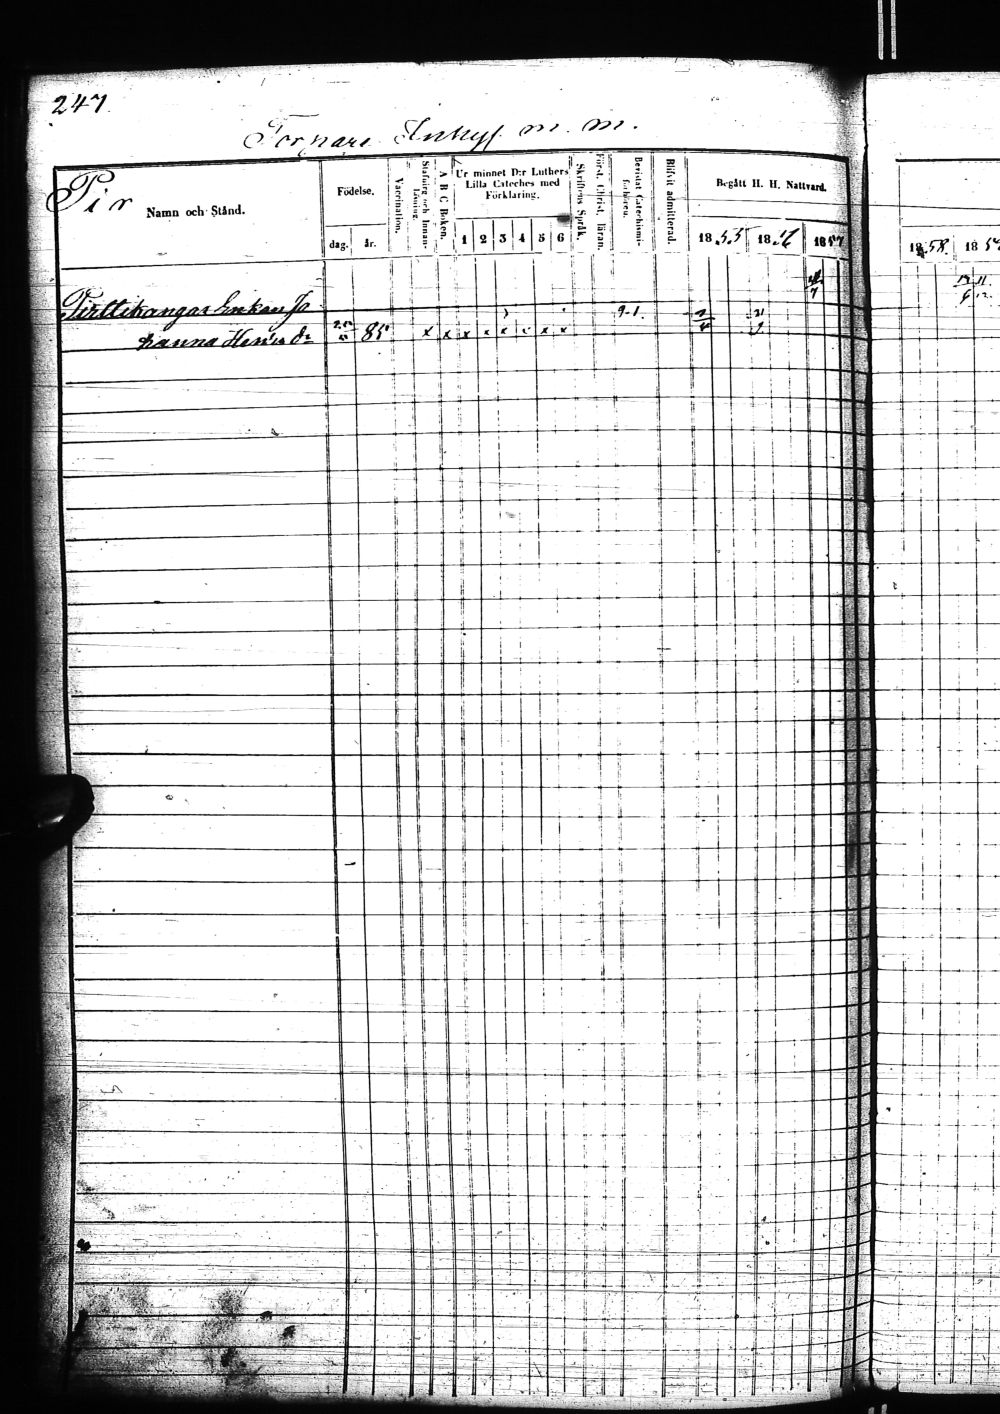 247
Torpare Inhys m. m.
Pir
Namn och Stånd.
Födelse.
dag. år.
Vaccination.
Stafning och Innan-
Läsning.
A B C Boken.
Ur minnet D:r Luthers
Lilla Cateches med
Förklaring.
1 2 3 4 5 6
Skriftens Språk.
Först. Christ. läran.
Bevistat Catechismi-
förhören.
Blifvit admitterad.
Begått H. H. Nattvard.
1855 1856 1857
1858. 185
Pirttikangas Enkan Jo
hanna Hens dr
85 x x x x x x x x
9-1.